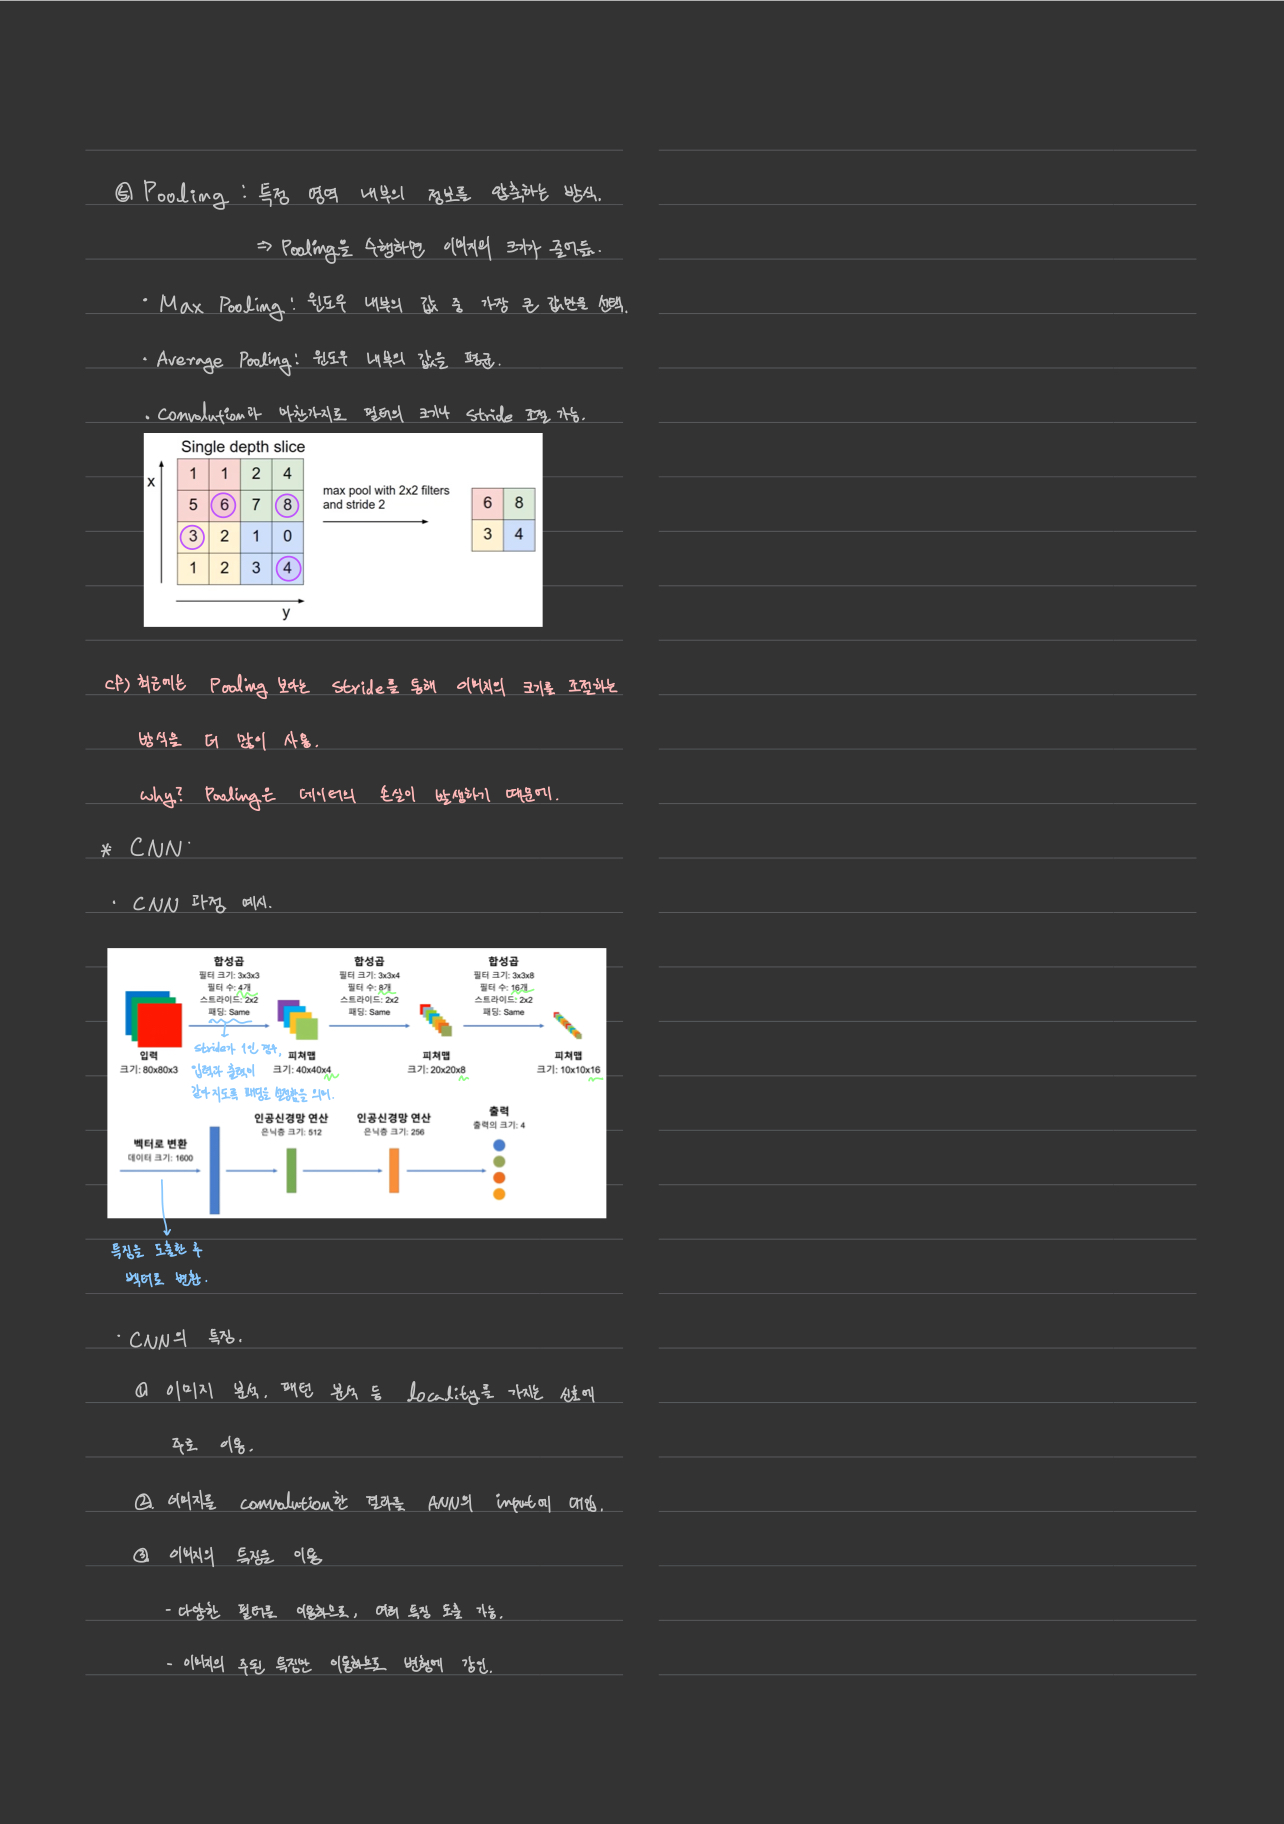 ⑤ Pooling : 특정 영역 내부의 정보를 압축하는 방식.
⇒ Pooling을 수행하면 이미지의 크기가 줄어듦.
· Max Pooling : 윈도우 내부의 값 중 가장 큰 값만을 선택.
· Average Pooling : 윈도우 내부의 값을 평균.
· Convolution과 마찬가지로 필터의 크기나 stride 조절 가능.
Single depth slice
x
1 1 2 4
5 6 7 8
3 2 1 0
1 2 3 4
y
max pool with 2x2 filters
and stride 2
6 8
3 4
cf) 최근에는 Pooling 보다는 stride를 통해 이미지의 크기를 조절하는
방식을 더 많이 사용.
why? Pooling은 데이터의 손실이 발생하기 때문에.
* CNN
· CNN 과정 예시.
합성곱
필터 크기: 3x3x3
필터 수: 4개
스트라이드: 2x2
패딩: Same
합성곱
필터 크기: 3x3x4
필터 수: 8개
스트라이드: 2x2
패딩: Same
합성곱
필터 크기: 3x3x8
필터 수: 16개
스트라이드: 2x2
패딩: Same
입력
크기: 80x80x3
피쳐맵
크기: 40x40x4
피쳐맵
크기: 20x20x8
피쳐맵
크기: 10x10x16
stride가 1인 경우,
입력과 출력이
같아지도록 패딩을 설정함을 의미.
벡터로 변환
데이터 크기: 1600
인공신경망 연산
은닉층 크기: 512
인공신경망 연산
은닉층 크기: 256
출력
출력의 크기: 4
특징을 도출한 후
벡터로 변환.
· CNN의 특징.
① 이미지 분석, 패턴 분석 등 locality를 가지는 신호에
주로 이용.
② 이미지를 convolution한 결과를 ANN의 input에 대입.
③ 이미지의 특징을 이용
- 다양한 필터를 이용하므로, 여러 특징 도출 가능.
- 이미지의 주된 특징만 이용하므로 변형에 강인.